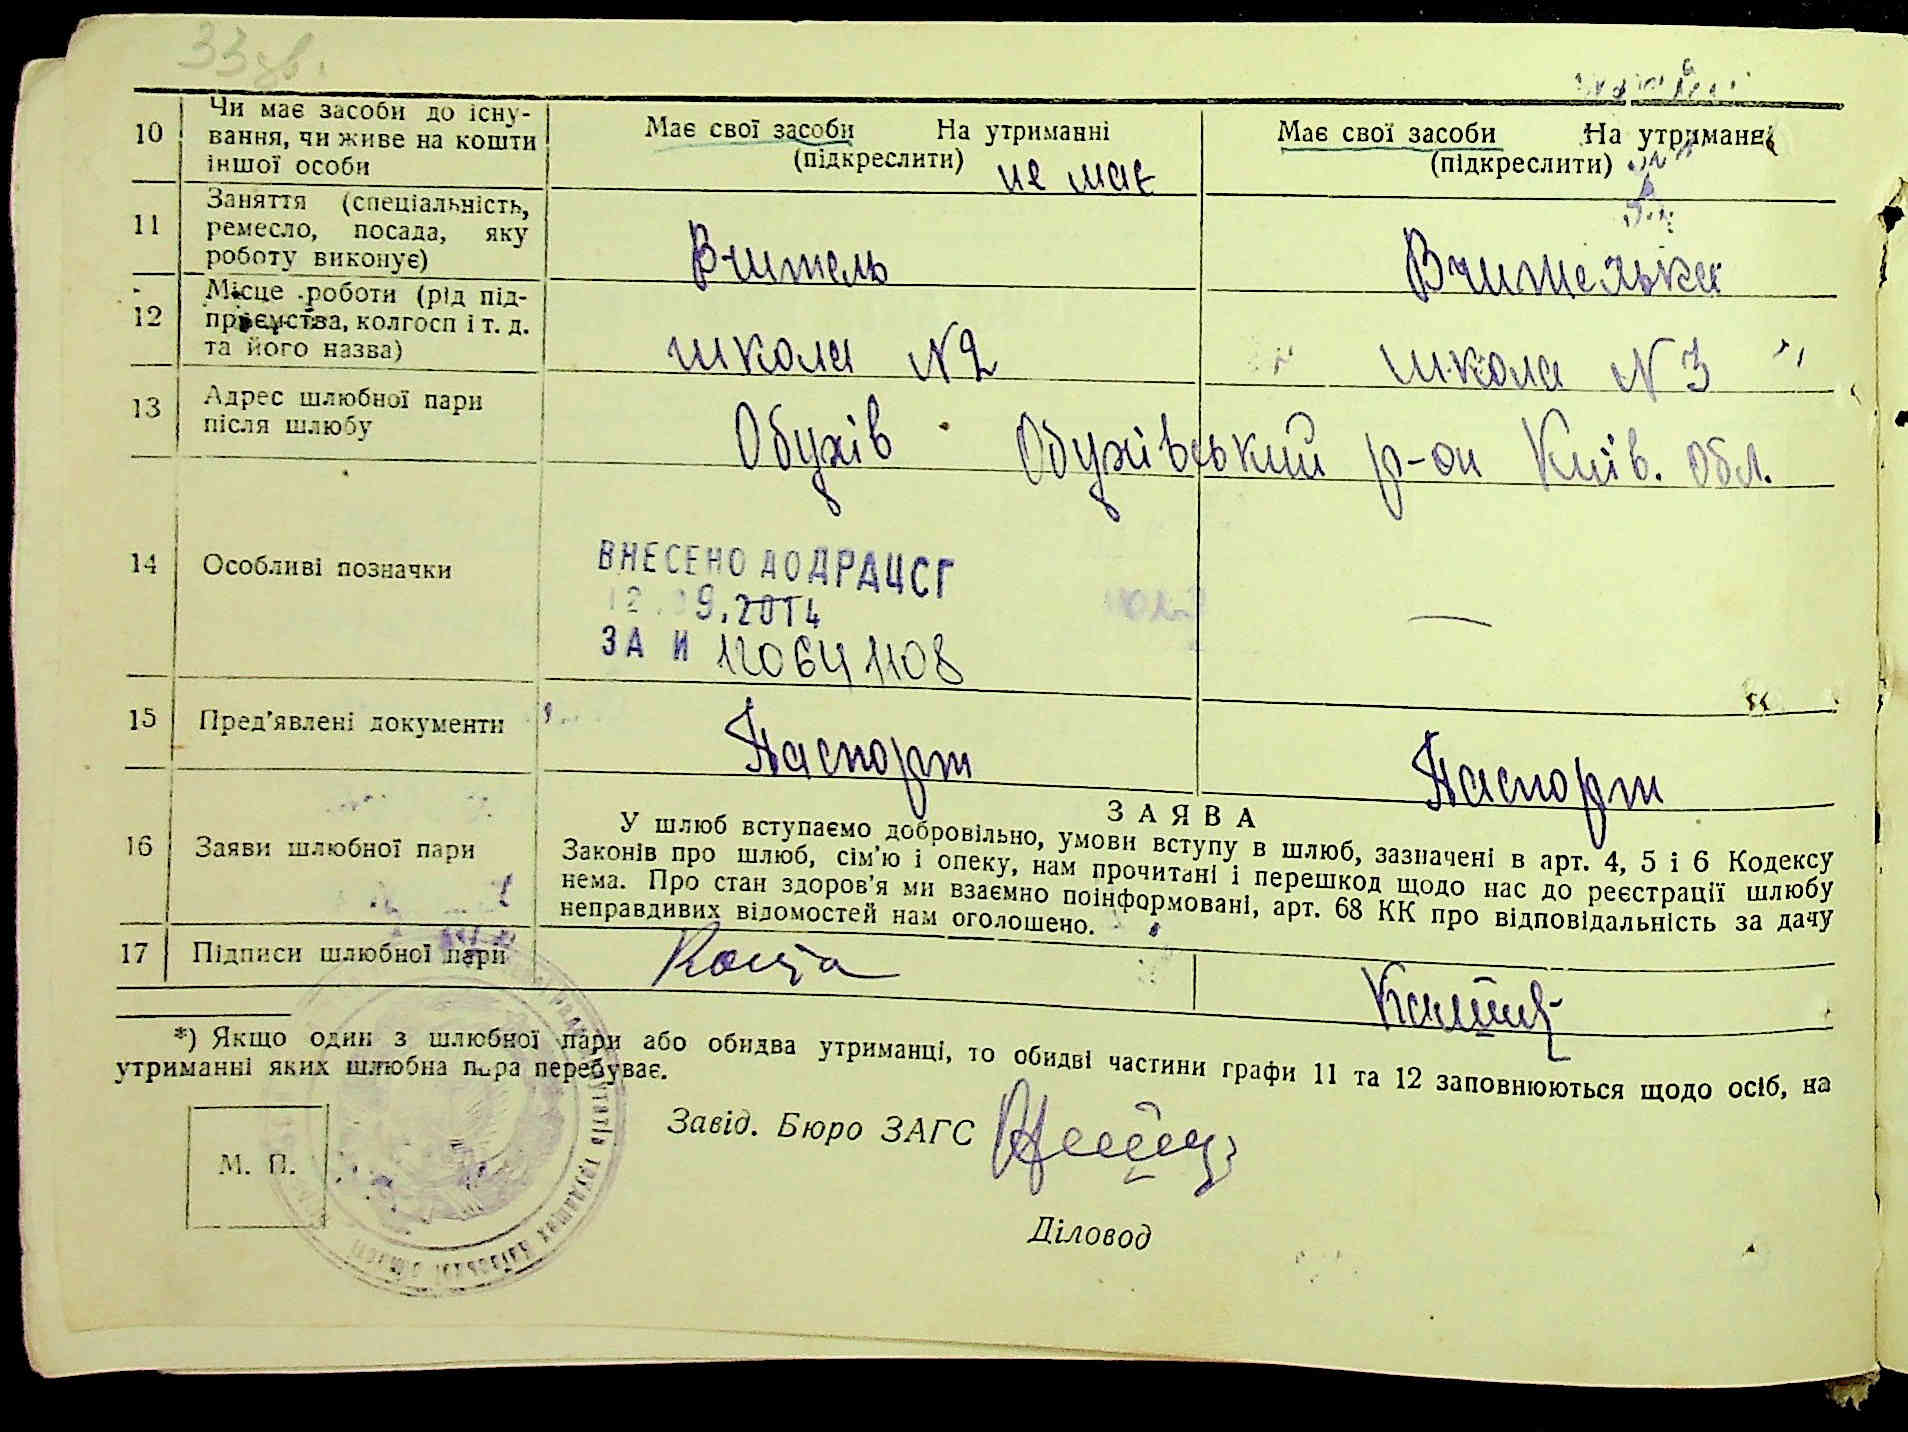 33 зв.
10 Чи має засоби до існу-
вання, чи живе на кошти
іншої особи
Має свої засоби На утриманні
(підкреслити) не має
Має свої засоби На утриманні
(підкреслити)
11 Заняття (спеціальність,
ремесло, посада, яку
роботу виконує)
Вчитель
Вчителька
12 Місце роботи (рід під-
приємства, колгосп і т. д.
та його назва)
школа N2
школа N 3
13 Адрес шлюбної пари
після шлюбу
Обухів Обухівський р-он Київ. обл.
14 Особливі позначки
ВНЕСЕНО ДО ДРАЦСГ
12.09.2014
ЗА И 120641108
—
15 Пред'явлені документи
Паспорт
Паспорт
16 Заяви шлюбної пари
ЗАЯВА
У шлюб вступаємо добровільно, умови вступу в шлюб, зазначені в арт. 4, 5 і 6 Кодексу
Законів про шлюб, сім'ю і опеку, нам прочитані і перешкод щодо нас до реєстрації шлюбу
нема. Про стан здоров'я ми взаємно поінформовані, арт. 68 КК про відповідальність за дачу
неправдивих відомостей нам оголошено.
17 Підписи шлюбної пари
*) Якщо один з шлюбної пари або обидва утриманці, то обидві частини графи 11 та 12 заповнюються щодо осіб, на
утриманні яких шлюбна пара перебуває.
Завід. Бюро ЗАГС
М. П.
Діловод